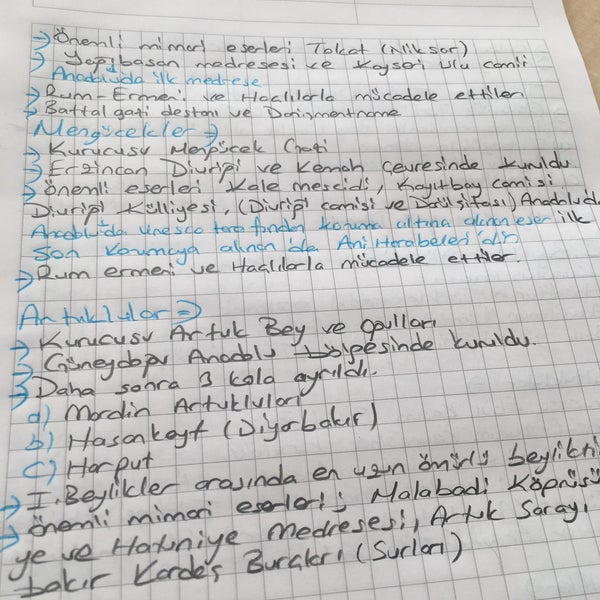 → Önemli mimari eserleri Tokat (Niksar)
→ Yağıbasan medresesi ve Kayseri Ulu camii
Anadoluda ilk medrese
→ Rum-Ermeni ve Haçlılarla mücadele ettiler
→ Battal gazi destanı ve Danişmentname
Mengücekler →
→ Kurucusu Mengücek Gazi
→ Erzincan Divriği ve Kemah çevresinde kuruldu
→ önemli eserleri Kale mescidi, Kayıtbay camisi
Divriği Külliyesi, (Divriği camisi ve Darüşşifası) Anadolud
Anadoluda unesco tarafından koruma altına alınan eser ilk
son korumaya alınan da Ani Harabeleri'dir
→ Rum ermeni ve Haçlılarla mücadele ettiler.
Artuklular ⇒
→ Kurucusu Artuk Bey ve oğulları
→ Güneydoğu Anadolu bölgesinde kuruldu.
→ Daha sonra 3 kola ayrıldı.
a) Mardin Artukluları
b) Hasankeyf (Diyarbakır)
c) Harput
→ I. Beylikler arasında en uzun ömürlü beylikti
→ önemli mimari eserleri; Malabadi Köprüsü
ye ve Hatuniye Medresesi, Artuk Sarayı
bakır Kardeş Burçları (Surları)